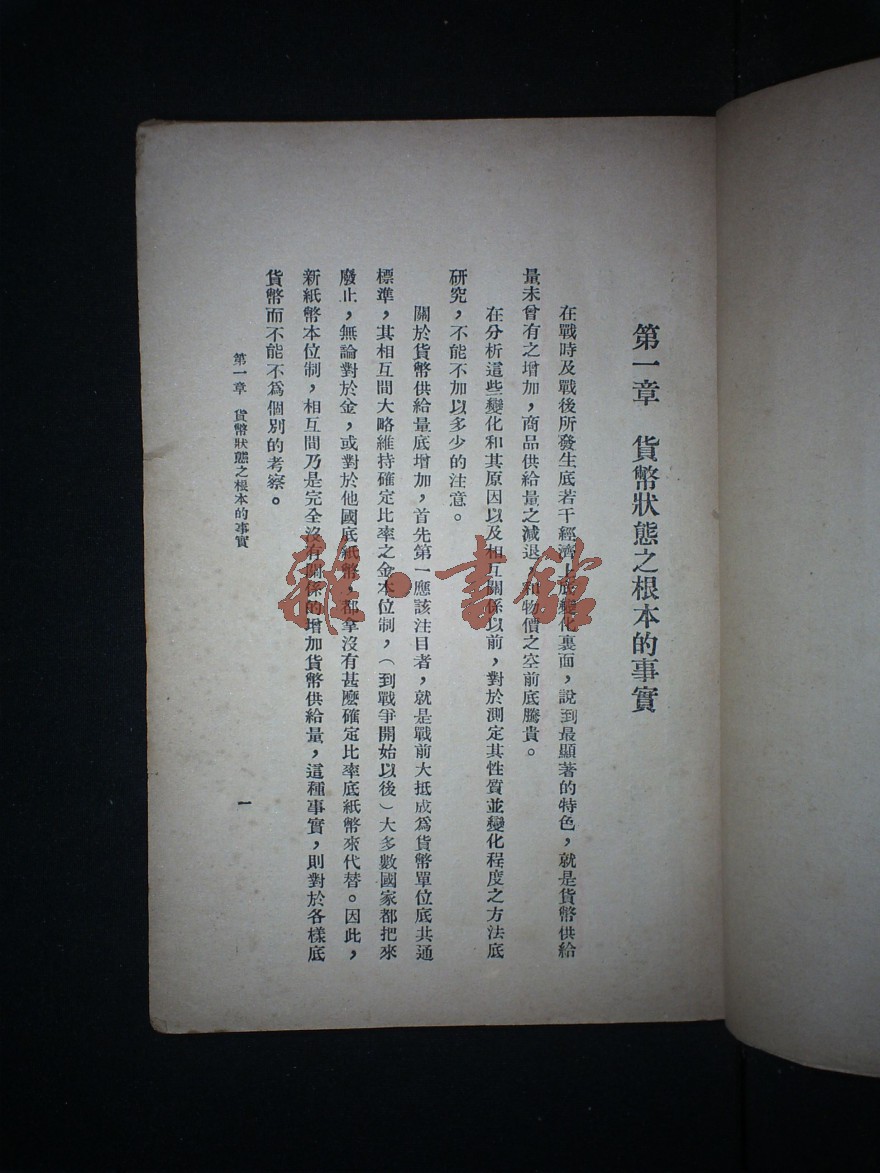 第一章　貨幣狀態之根本的事實
在戰時及戰後所發生底若干經濟上底變化裏面，說到最顯著的特色，就是貨幣供給
量未曾有之增加，商品供給量之減退，和物價之空前底騰貴。
在分析這些變化和其原因以及相互關係以前，對於測定其性質並變化程度之方法底
研究，不能不加以多少的注意。
關於貨幣供給量底增加，首先第一應該注目者，就是戰前大抵成爲貨幣單位底共通
標準，其相互間大略維持確定比率之金本位制，（到戰爭開始以後）大多數國家都把來
廢止，無論對於金，或對於他國底紙幣，都拿沒有甚麼確定比率底紙幣來代替。因此，
新紙幣本位制，相互間乃是完全沒有關係的增加貨幣供給量，這種事實，則對於各樣底
貨幣而不能不爲個別的考察。
第一章　貨幣狀態之根本的事實
一
雜·書館